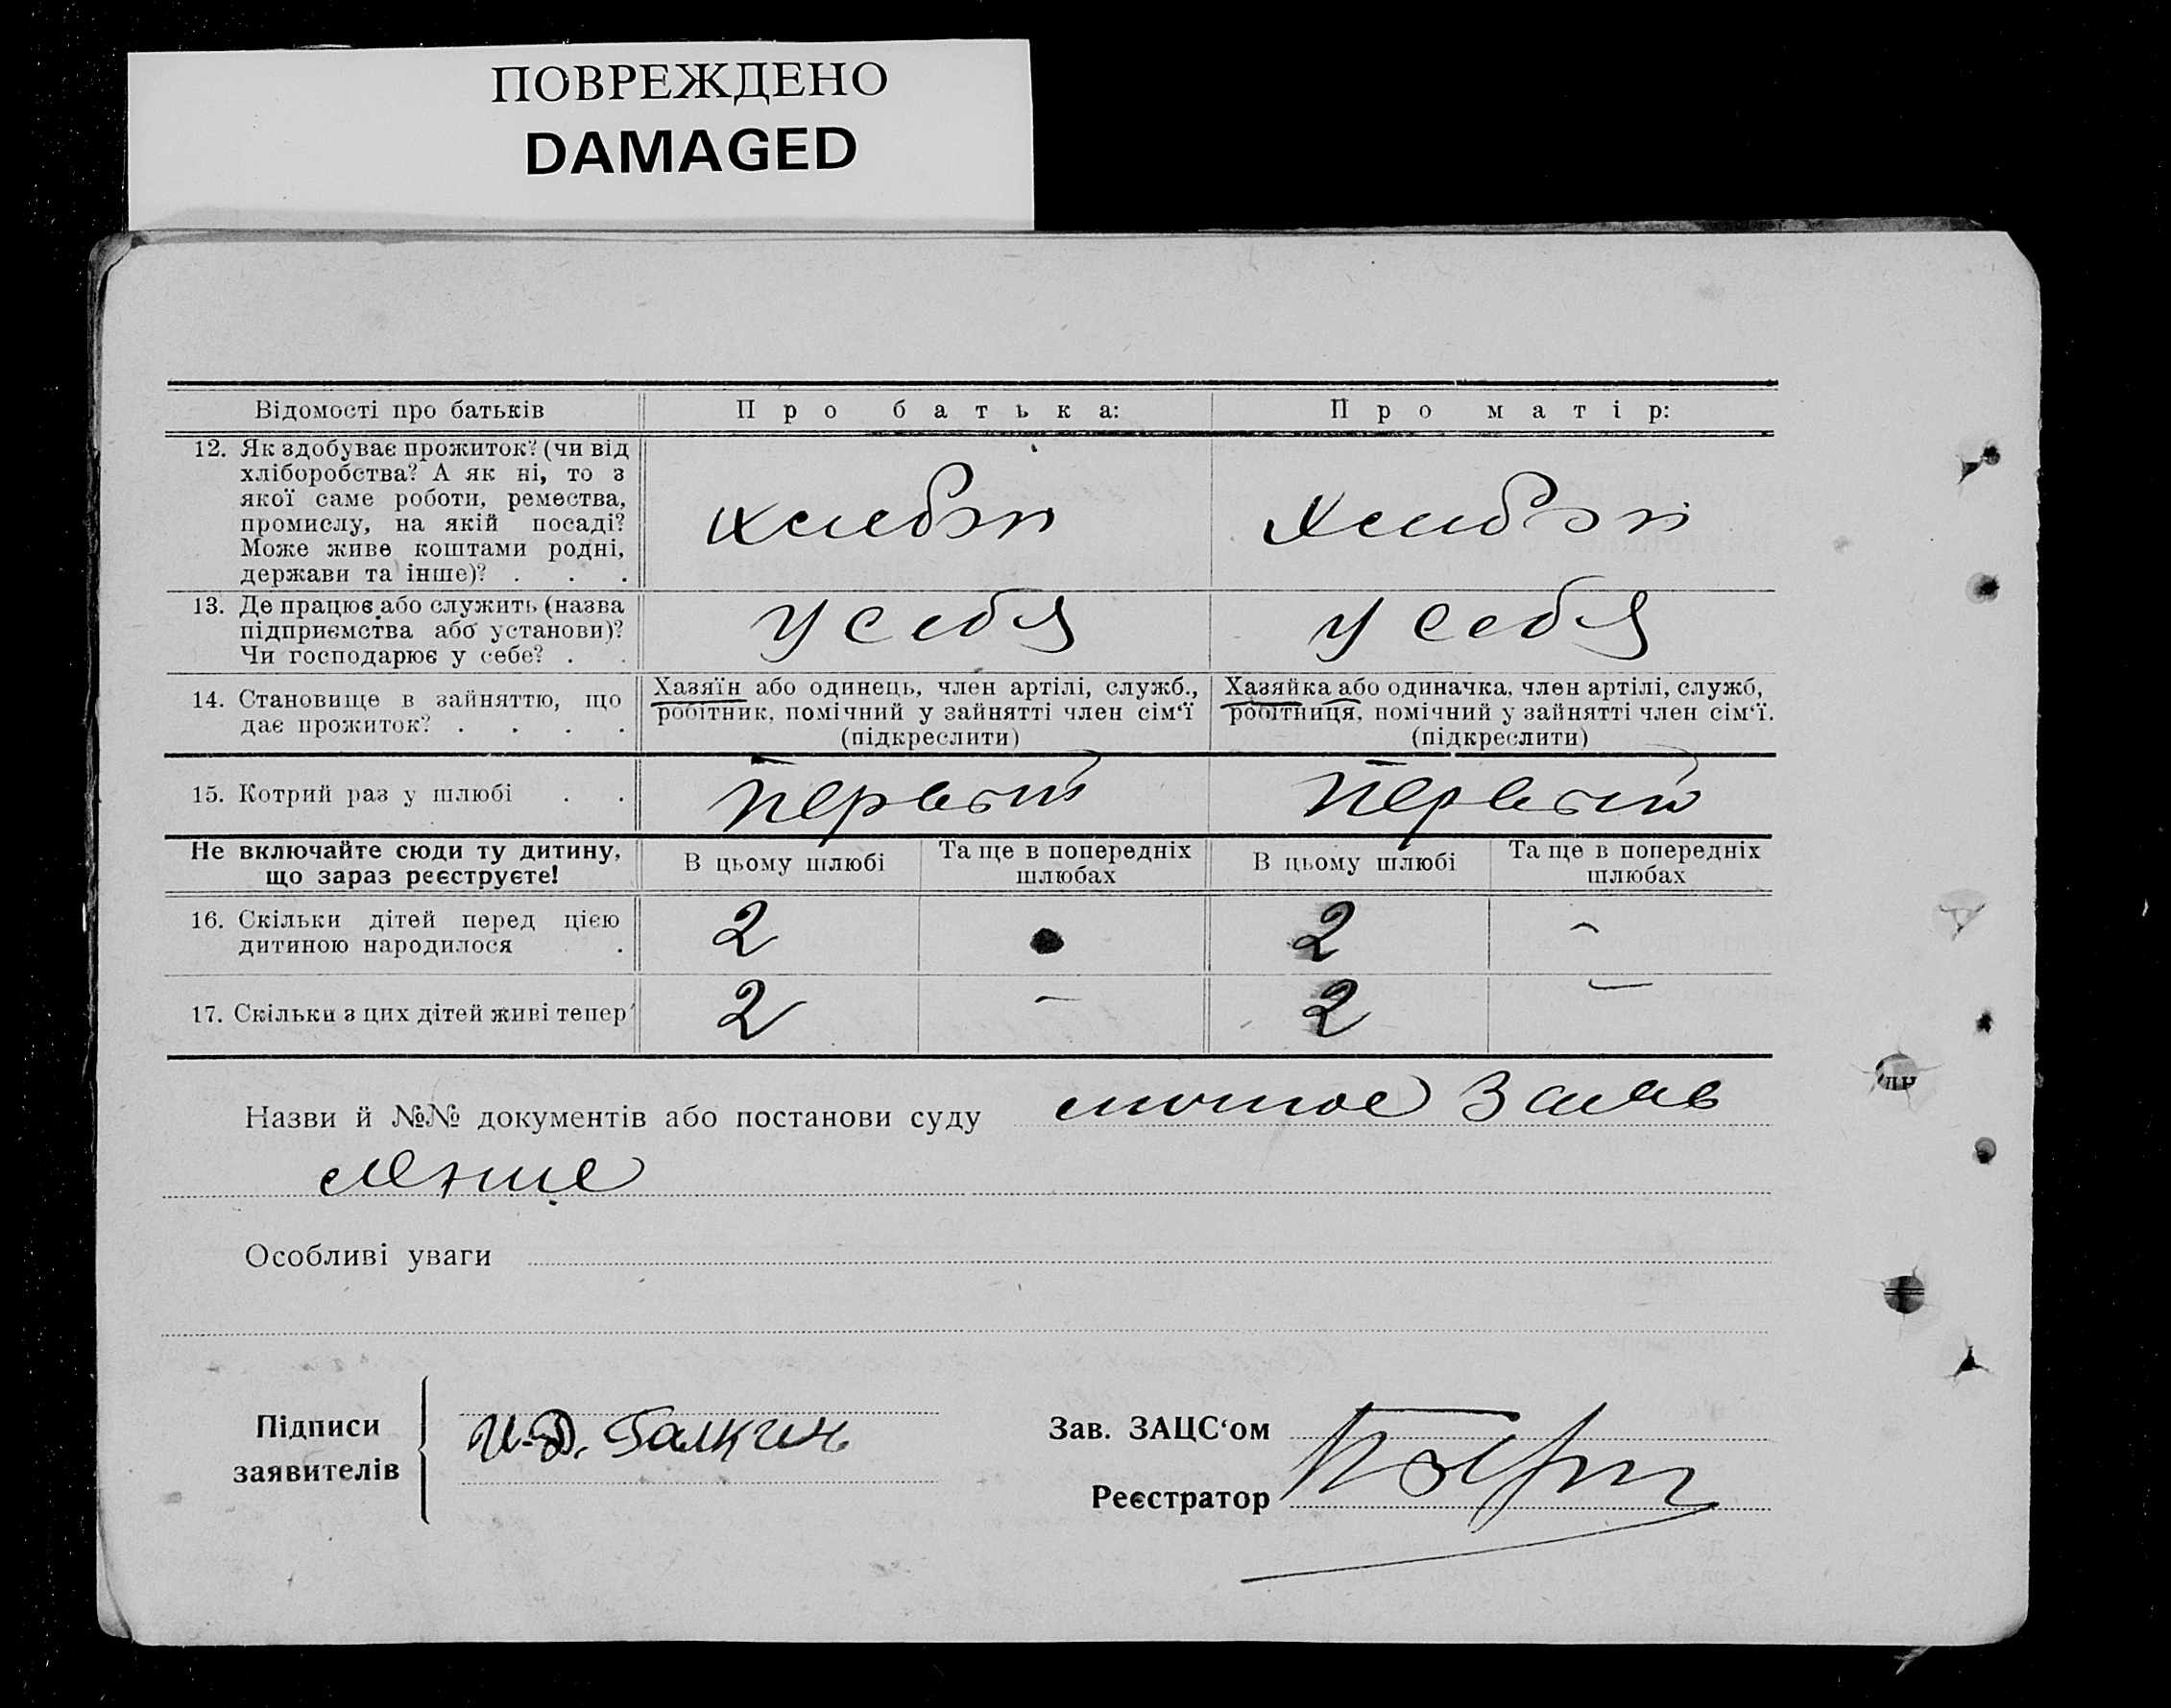 ПОВРЕЖДЕНО
DAMAGED
Відомості про батьків
Про батька:
Про матір:
12. Як здобуває прожиток? (чи від
хліборобства? А як ні, то з
якої саме роботи, ремества,
промислу, на якій посаді?
Може живе коштами родні,
держави та інше)? . . .
хлебоп
хлебоп
13. Де працює або служить (назва
підприємства або установи)?
Чи господарює у себе? . .
у себя
у себя
14. Становище в зайняттю, що
дає прожиток? . . . .
Хазяїн або одинець, член артілі, служб.,
робітник, помічний у зайнятті член сім‘ї
(підкреслити)
Хазяйка або одиначка, член артілі, служб,
робітниця, помічний у зайнятті член сім‘ї.
(підкреслити)
15. Котрий раз у шлюбі . .
первый
первый
Не включайте сюди ту дитину,
що зараз реєструєте!
В цьому шлюбі
Та ще в попередніх
шлюбах
В цьому шлюбі
Та ще в попередніх
шлюбах
16. Скільки дітей перед цією
дитиною народилося .
2
2 -
17. Скільки з цих дітей живі тепер
2 -
2 -
Назви й №№ документів або постанови суду личное заяв
ление
Особливі уваги
Підписи
заявителів
И.Д. Галкин
Зав. ЗАЦС‘ом
Реєстратор